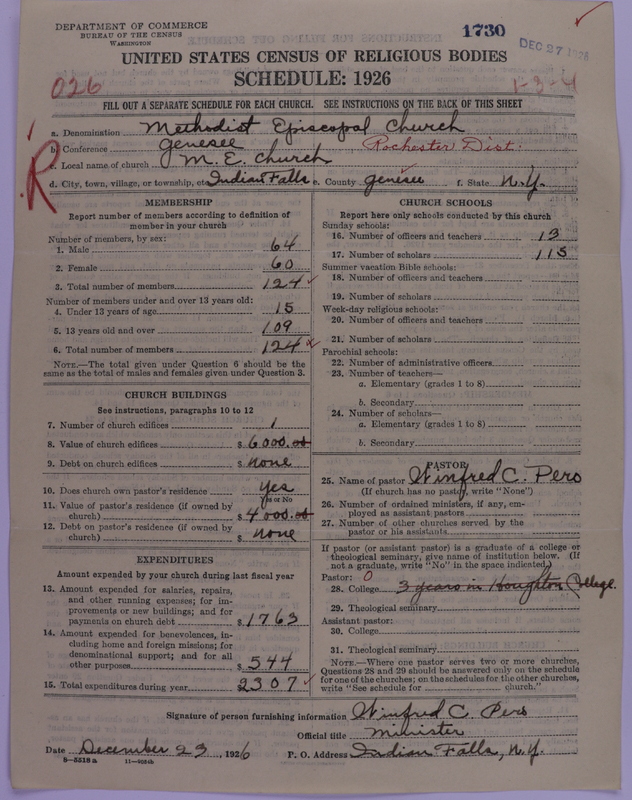 DEPARTMENT OF COMMERCE
BUREAU OF THE CENSUS
WASHINGTON
1730
DEC 27 1926
UNITED STATES CENSUS OF RELIGIOUS BODIES
SCHEDULE: 1926
026
1-3-4
FILL OUT A SEPARATE SCHEDULE FOR EACH CHURCH. SEE INSTRUCTIONS ON THE BACK OF THIS SHEET
a. Denomination Methodist Episcopal Church
b. Conference Genesee Rochester Dist.
c. Local name of church M. E. Church
R
d. City, town, village, or township, etc. Indian Falls e. County Genesee f. State N.Y.
MEMBERSHIP
Report number of members according to definition of
member in your church
Number of members, by sex:
1. Male 64
2. Female 60
3. Total number of members 124
Number of members under and over 13 years old:
4. Under 13 years of age 15
5. 13 years old and over 109
6. Total number of members 124
NOTE.—The total given under Question 6 should be the
same as the total of males and females given under Question 3.
CHURCH BUILDINGS
See instructions, paragraphs 10 to 12
7. Number of church edifices 1
8. Value of church edifices $ 6000.00
9. Debt on church edifices $ none
10. Does church own pastor's residence yes
Yes or No
11. Value of pastor's residence (if owned by
church) $ 4000.00
12. Debt on pastor's residence (if owned by
church) $ none
EXPENDITURES
Amount expended by church during last fiscal year
13. Amount expended for salaries, repairs,
and other running expenses; for im-
provements or new buildings; and for
payments on church debt $ 1763
14. Amount expended for benevolences, in-
cluding home and foreign missions; for
denominational support; and for all
other purposes $ 544
15. Total expenditures during year 2307
CHURCH SCHOOLS
Report here only schools conducted by this church
Sunday schools:
16. Number of officers and teachers 13
17. Number of scholars 115
Summer vacation Bible schools:
18. Number of officers and teachers
19. Number of scholars
Week-day religious schools:
20. Number of officers and teachers
21. Number of scholars
Parochial schools:
22. Number of administrative officers
23. Number of teachers—
a. Elementary (grades 1 to 8)
b. Secondary
24. Number of scholars—
a. Elementary (grades 1 to 8)
b. Secondary
PASTOR
25. Name of pastor Winfred C. Pero
(If church has no pastor, write "None")
26. Number of ordained ministers, if any, em-
ployed as assistant pastors
27. Number of other churches served by the
pastor or his assistants
If pastor (or assistant pastor) is a graduate of a college or
theological seminary, give name of institution below. (If
not a graduate, write "No" in the space indicated)
Pastor: 0
28. College 3 years in Houghton College.
29. Theological seminary
Assistant pastor:
30. College
31. Theological seminary
NOTE.—Where one pastor serves two or more churches,
Questions 28 and 29 should be answered only on the schedule
for one of the churches; on the schedules for the other churches,
write "See schedule for church."
Signature of person furnishing information Winfred C. Pero
Official title minister
Date December 23, 1926 P. O. Address Indian Falls, N.Y.
8—5518 a